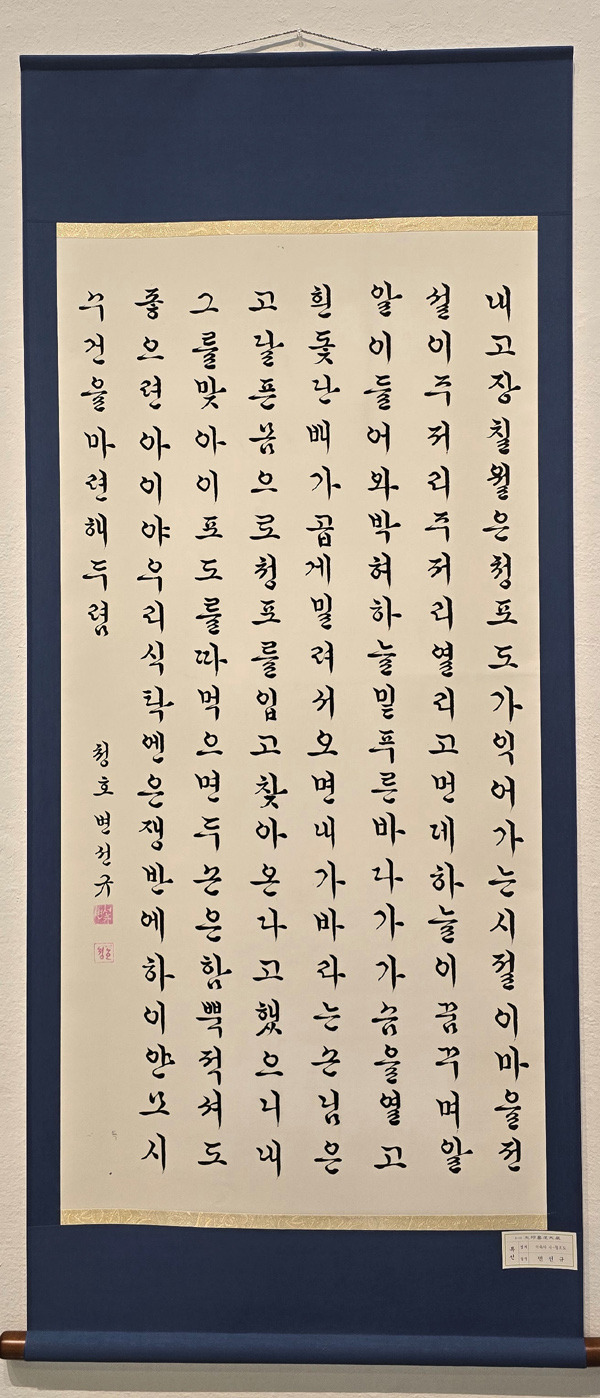 내고장칠월은청포도가익어가는시절이마을전
설이주저리주저리열리고먼데하늘이꿈꾸며알
알이들어와박혀하늘밑푸른바다가가슴을열고
흰돛단배가곱게밀려서오면내가바라는손님은
고달픈몸으로청포를입고찾아온다고했으니내
그를맞아이포도를따먹으면두손은함뿍적셔도
좋으련아이야우리식탁엔은쟁반에하이얀모시
수건을마련해두렴
청호변선규
변선규